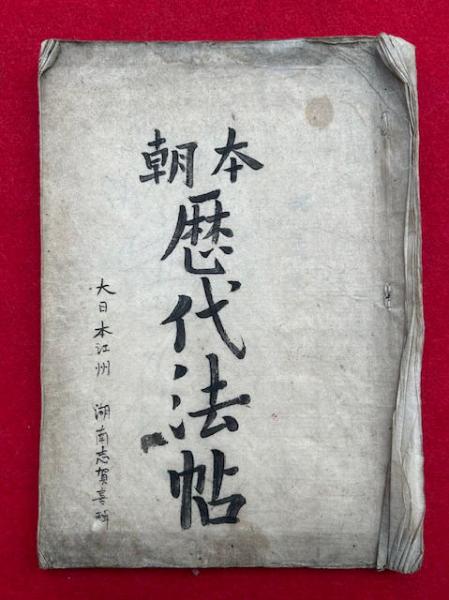 本朝
歴代法帖
大日本江州 湖南志賀